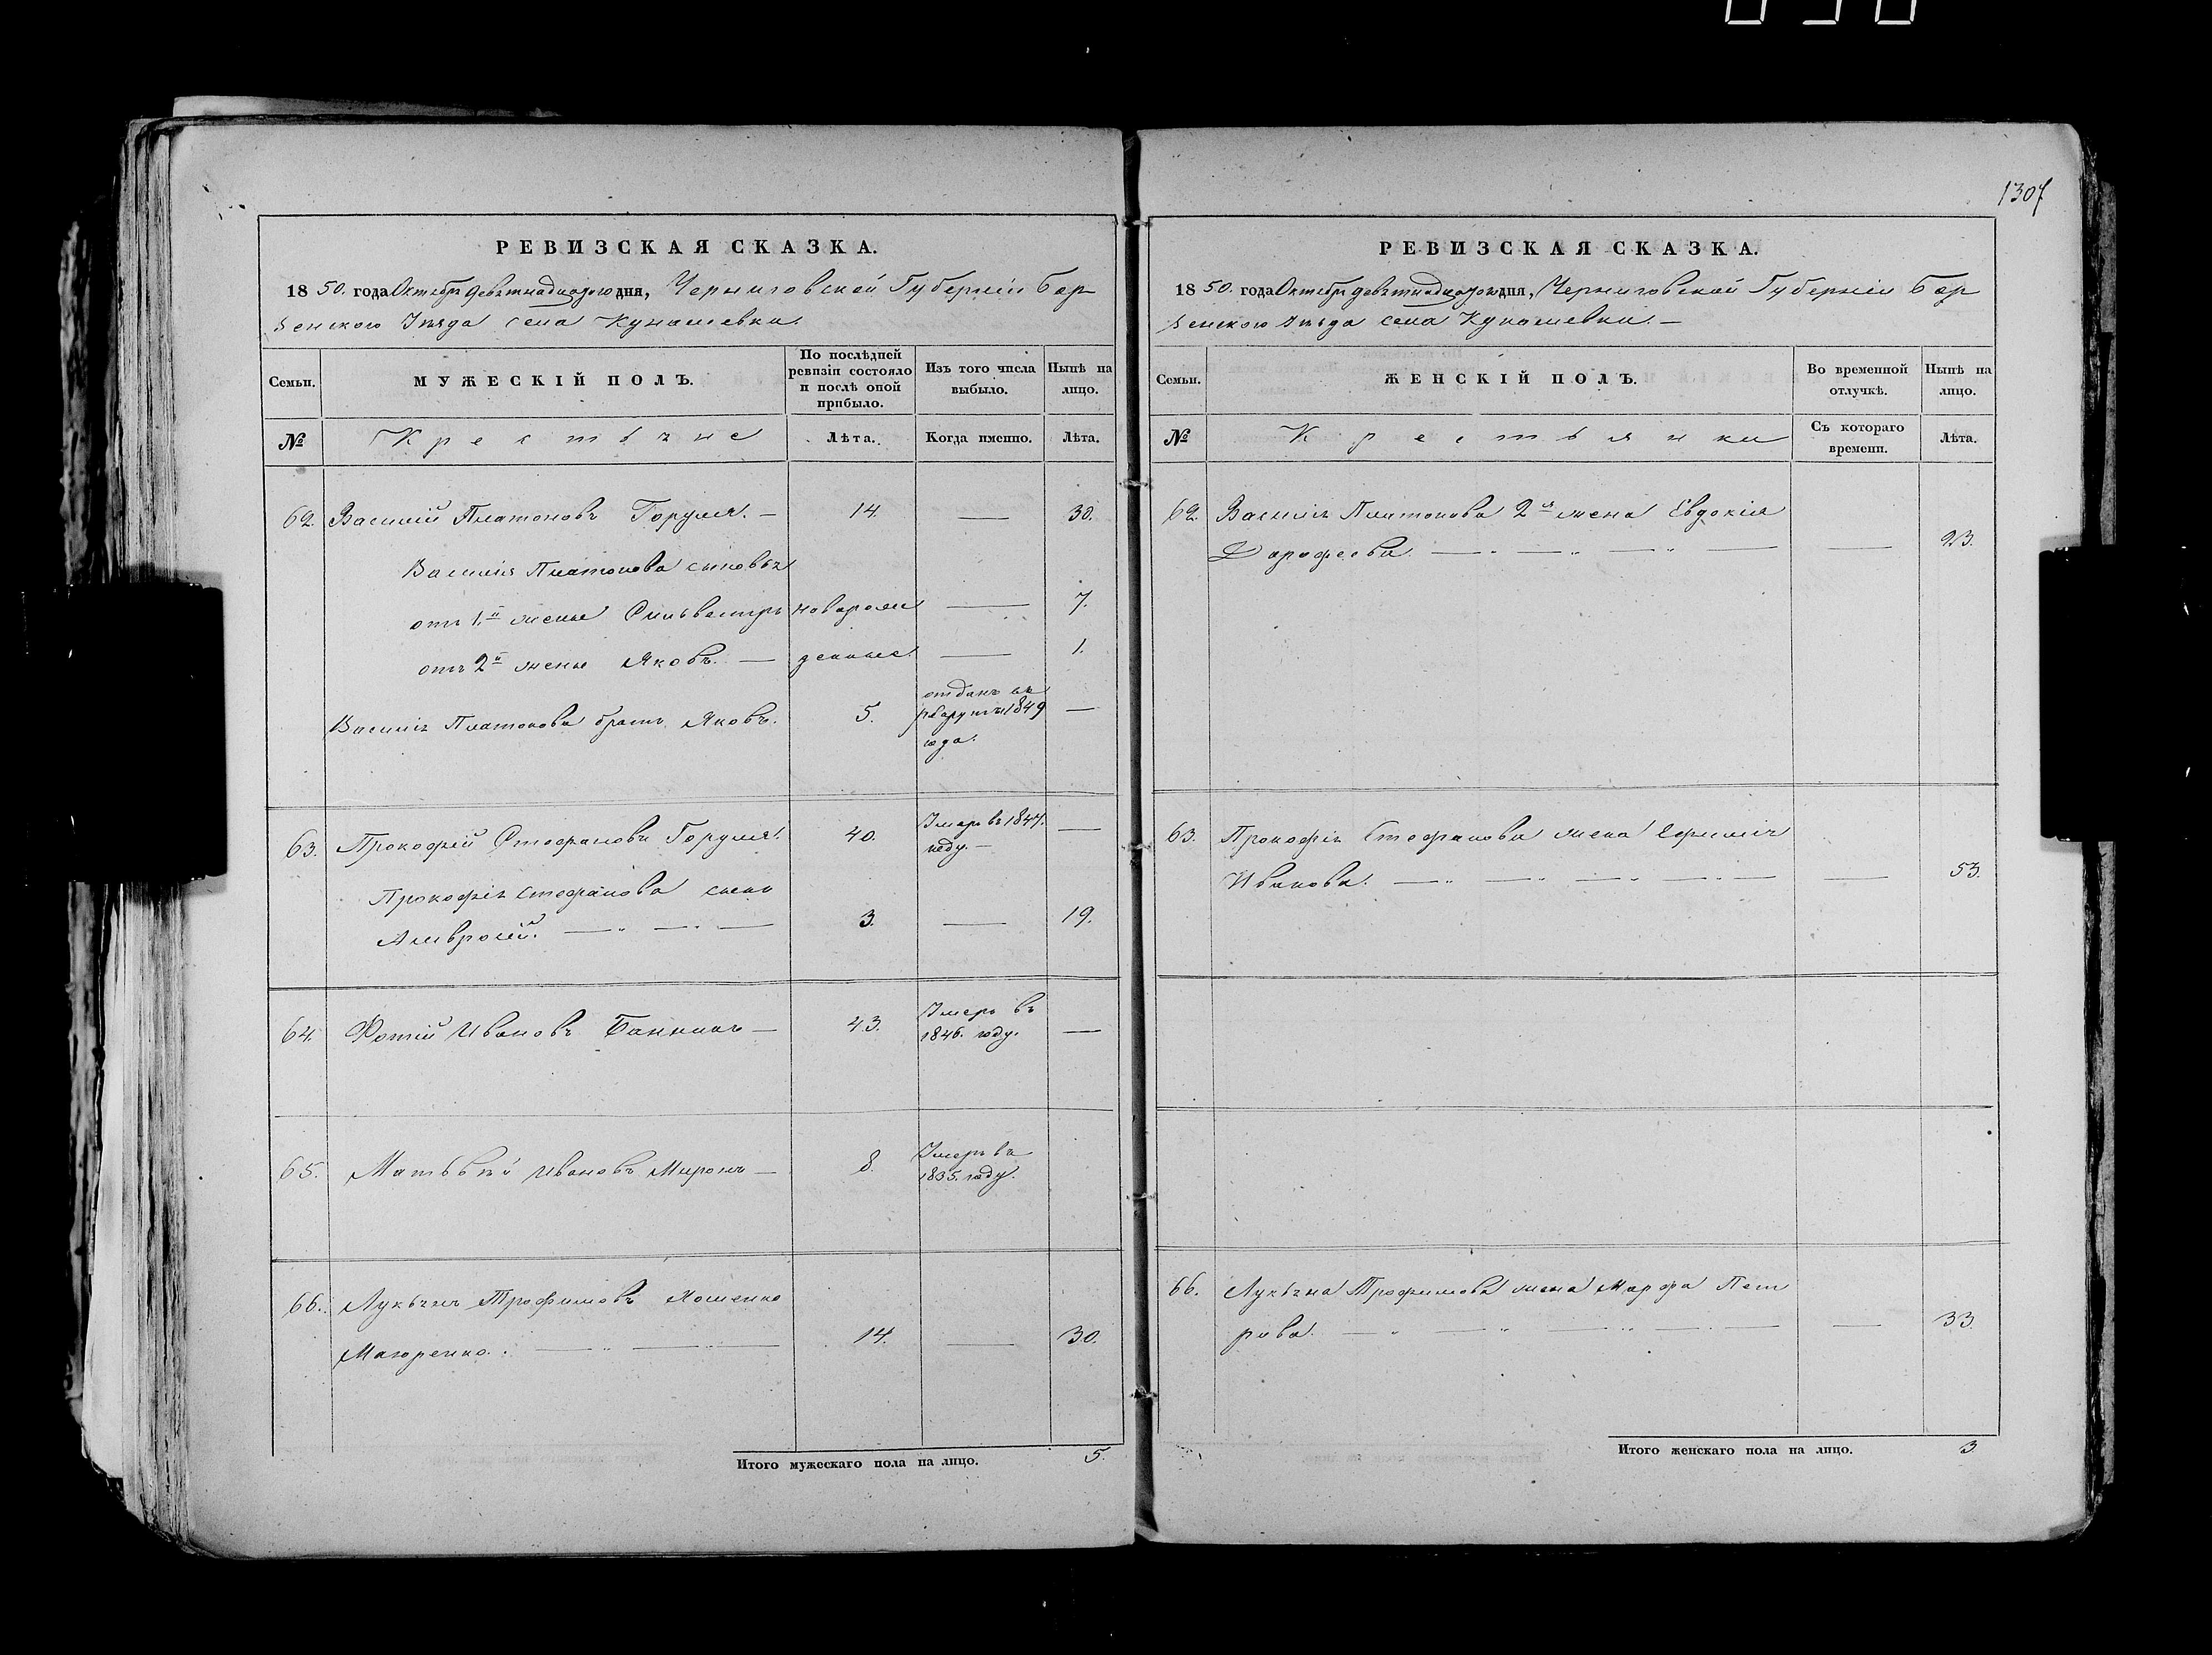 1307
РЕВИЗСКАЯ СКАЗКА.
1850. года Октября девятнадцатого дня, Черниговской Губерніи Бор
зенского Уѣзда села Кунашевки.
Семьи.
МУЖЕСКІЙ ПОЛЪ.
По послѣдней ревизіи состояло и послѣ оной прибыло.
Изъ того числа выбыло.
Нынѣ на лицо.
№
Крестьяне
Лѣта.
Когда именно.
Лѣта.
62. Василій Платоновъ Горуля. — 14. — 30.
Василія Платонова сыновья
отъ 1й жены Сильвестръ новорож — 7.
отъ 2й жены Яковъ. — денные. — 1.
Василія Платонова братъ Яковъ. 5. отданъ въ рекруты 1849 года. —
63. Прокофій Стефановъ Горуля. 40. Умеръ въ 1847. году. —
Прокофія Стефанова сынъ
Амвросій. — 3. — 19.
64. Фотій Ивановъ — 43. Умеръ въ 1846. году. —
65. Матвѣй Ивановъ Миронъ — 8. Умеръ въ 1835. году.
66. Лукьянъ Трофимовъ
14. — 30.
Итого мужескаго пола на лицо. 5.
РЕВИЗСКАЯ СКАЗКА.
1850. года Октября девятнадцатого дня, Черниговской Губерніи Бор
зенского Уѣзда села Кунашевки. —
Семьи.
ЖЕНСКІЙ ПОЛЪ.
Во временной отлучкѣ.
Нынѣ на лицо.
№
Крестьянки
Съ котораго времени.
Лѣта.
62. Василія Платонова 2я жена Евдокія
Дорофеева. — — 23.
63. Прокофія Стефанова жена Ефимія
Иванова. — — 53.
66. Лукьяна Трофимова жена Марфа Пет
рова. — — 33.
Итого женскаго пола на лицо. 3